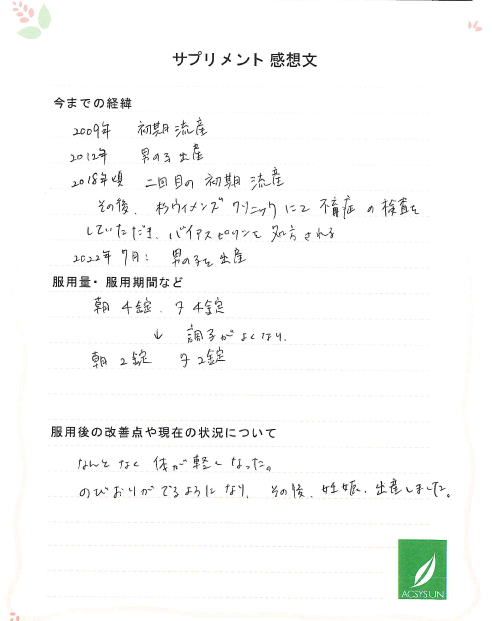 サプリメント 感想文
今までの経緯
2009年 初期流産
2012年 男の子出産
2018年頃 二回目の初期流産
その後、杉ウィメンズクリニックにて不育症の検査を
していただき、バイアスピリンを処方される
2022年7月：男の子を出産
服用量・服用期間など
朝 4錠、夕 4錠
↓ 調子がよくなり、
朝 2錠 夕 2錠
服用後の改善点や現在の状況について
なんとなく体が軽くなった。
のびおりがでるようになり、その後、妊娠、出産しました。
ACSYSUN